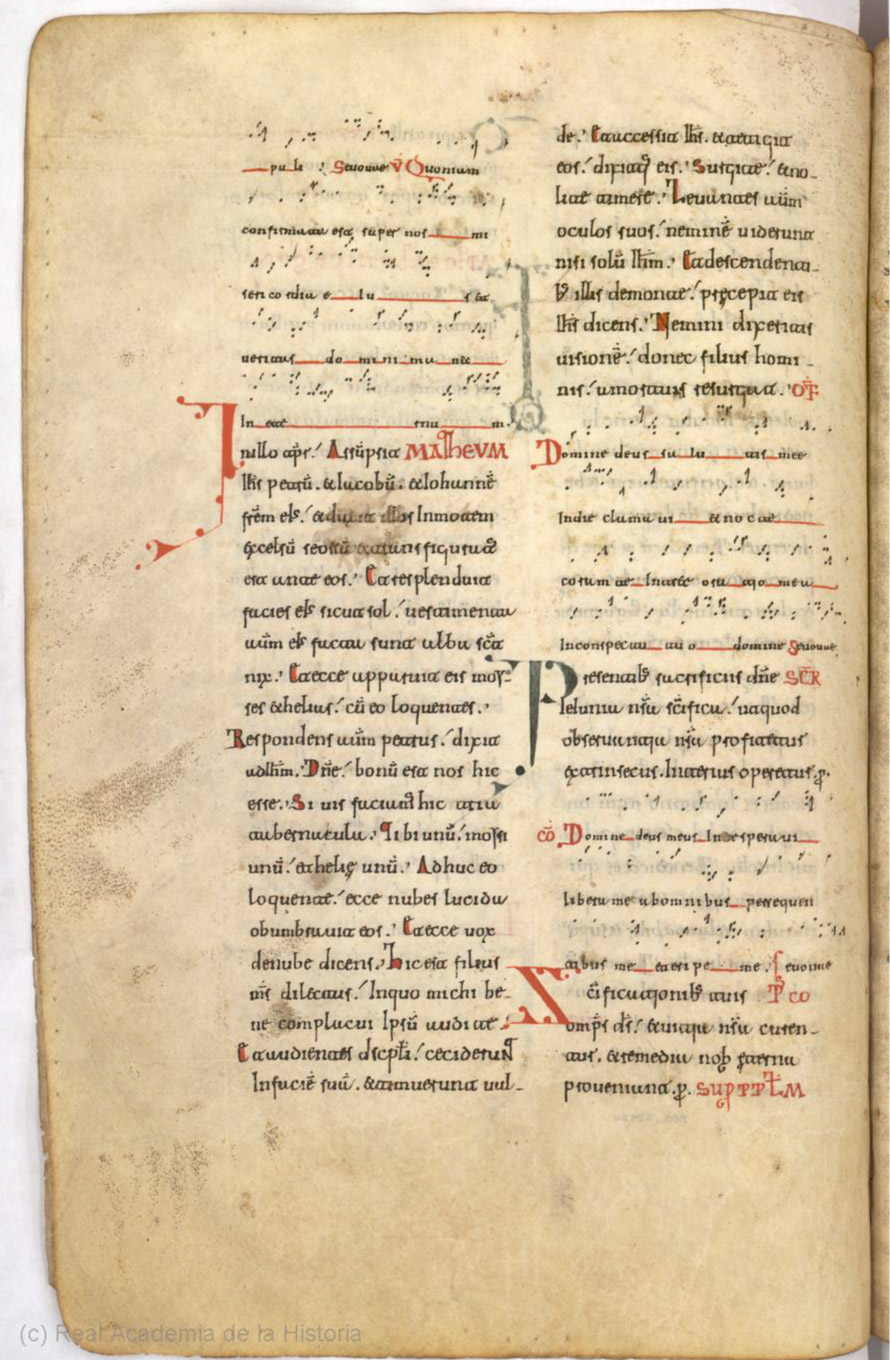 puli Seuouae V Quoniam
confirmata est super nos mi
sericordia e iu s &
ueritas domini ma net
In aet ernu m.
In illo tp̄r. Assūpsit MATHEVM
Ih̄s petrū. & Iacobū. & Iohannē
fr̄em eis. & duxit illos In montem
excelsū seorsū & transfiguratus
est ante eos. Et resplenduit
facies eis sicut sol. uestimenta
aūm eis facta sunt alba sic̄
nix. Et ecce apparuit eis moy
ses & helias. cū eo loquentes.
Respondens aūm petrus. dixit
ad Ih̄m. Dn̄e. bonū est nos hic
esse. Si uis faciam hic tria
tabernacula. Tibi unū. moysi
unū. et helię unū. Adhuc eo
loquente. ecce nubes lucida
obumbrauit eos. Et ecce uox
de nube dicens. Hic est filius
m̄s dilectus. In quo michi be-
ne complacui Ipsū audite.
Et audientes discpl̄i. ceciderunt
In faciē suā. & timuerunt ual-
de. Et accessit Ih̄s. & tetigit
eos. dixitq; eis. Surgite. & no-
lite timere. Leuantes aūm
oculos suos. neminē uiderunt
nisi solū Ih̄m. Et descendenti-
b; illis de monte. pręcepit eis
Ih̄s dicens. Nemini dixeritis
uisionē. donec filius homi-
nis. a mortuis resurgat. OF̄
Domine deus sa lu tis mee
In die clamaui & nocte
coram te Intret oratio mea
In conspectu tuo domine Seuouae
Presentib; sacrificiis dn̄e SCR
Ieiunia nr̄a sc̄ifica. ut quod
obseruantia nr̄a profitetur
extrinsecus. Interius operetur. p.
cō. Domine deus meus In te speraui
libera me ab omnibus persequen
tibus me et eripe me. Seuouae
Sc̄ificationib; tuis P̄ CO
omp̄s ds̄. & uitia nr̄a curen-
tur. & remedia nob ęterna
proueniant. p. SUP PPL̄M
(c) Real Academia de la Historia